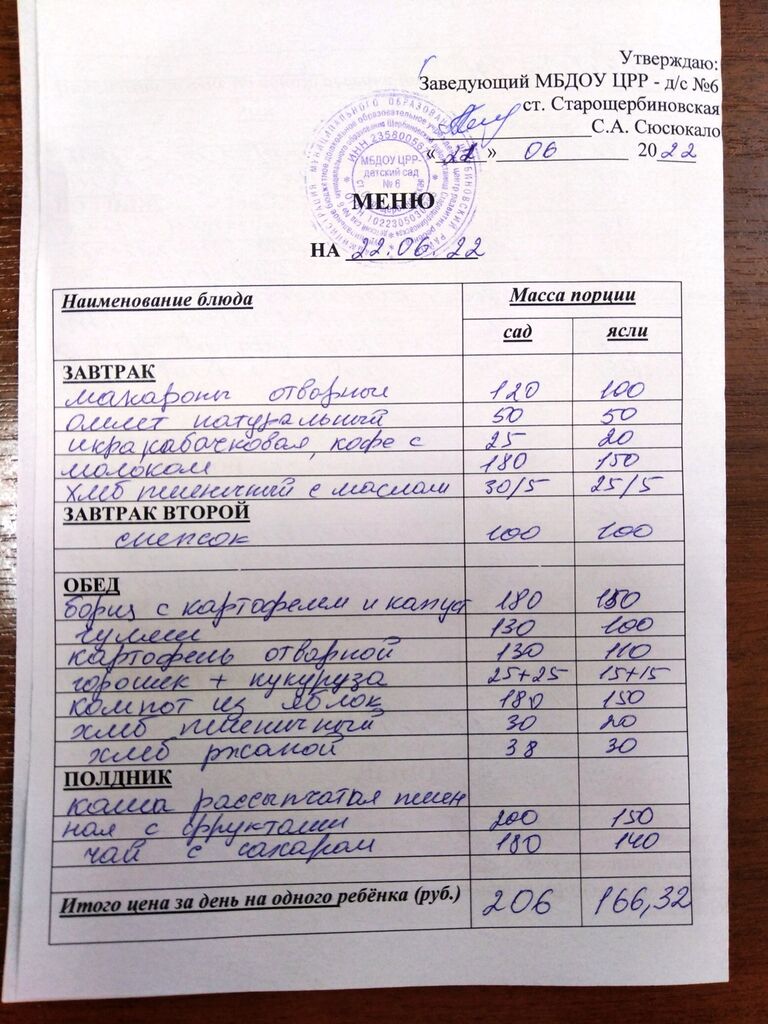 Утверждаю:
Заведующий МБДОУ ЦРР - д/с №6
ст. Старощербиновская
С.А. Сюсюкало
«22» 06 2022
МБДОУ ЦРР-
детский сад
№ 6
МЕНЮ
НА 22.06.22
Наименование блюда Масса порции
сад ясли
ЗАВТРАК
макароны отворные 120 100
омлет натуральный 50 50
икра кабачковая, кофе с 25 20
молоком 180 150
хлеб пшеничный с маслом 30/5 25/5
ЗАВТРАК ВТОРОЙ
снепсок 100 100
ОБЕД
борщ с картофелем и капуст 180 150
гуляш 130 100
картофель отворной 130 110
горошек + кукуруза 25+25 15+15
компот из яблок 180 150
хлеб пшеничный 30 20
хлеб ржаной 38 30
ПОЛДНИК
каша рассыпчатая пшен
ная с фруктами 200 150
чай с сахаром 180 140
Итого цена за день на одного ребёнка (руб.) 206 166,32